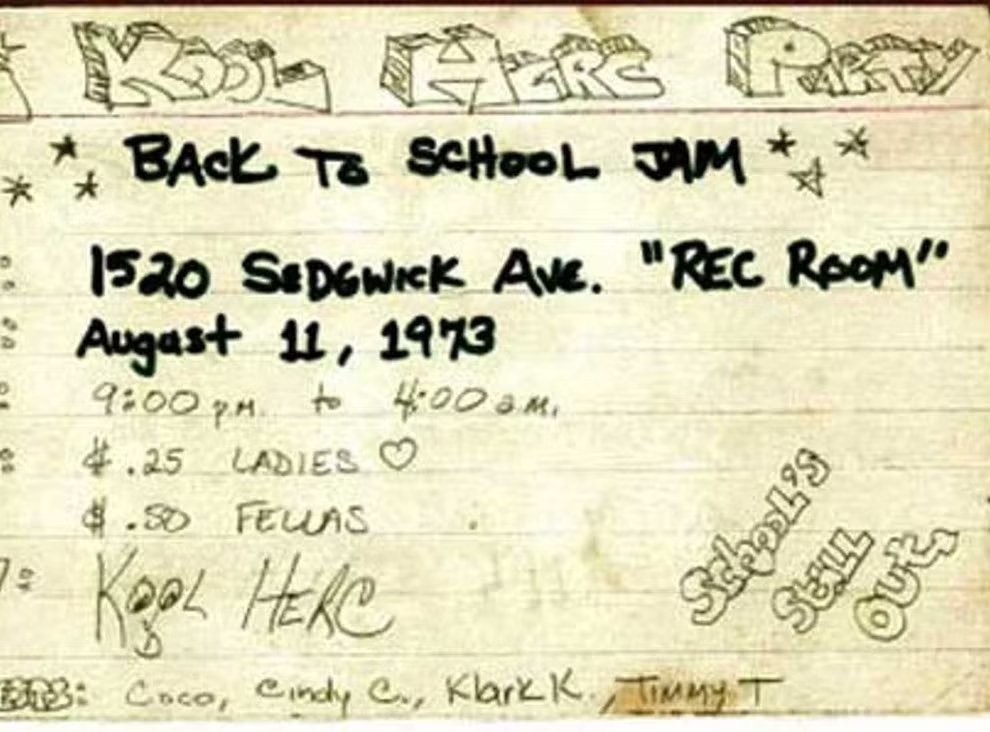 KOOL HERC PARTY
BACK TO SCHOOL JAM
1520 SEDGWICK AVE. "REC ROOM"
August 11, 1973
9:00 p.m. to 4:00 a.m.
$ .25 LADIES ♡
$ .50 FELLAS
KOOL HERC
SCHOOL'S
STILL
OUT
Coco, Cindy C., Klark K., TIMMY T